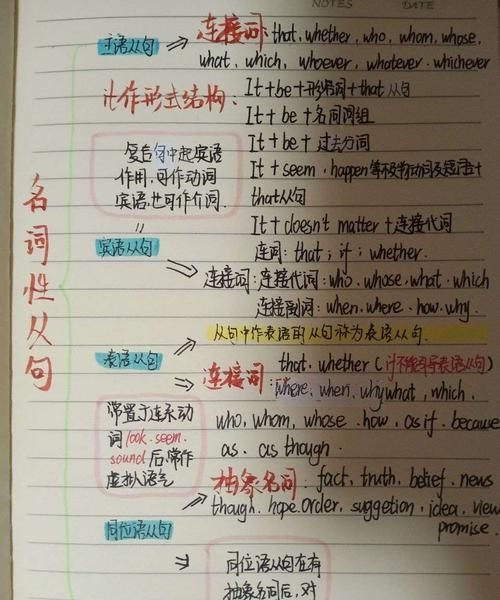 NOTES DATE
名词性从句
主语从句 ⇒ 连接词: that, whether, who, whom, whose,
what, which, whoever, whatever, whichever
it作形式结构: It + be + 形容词 + that 从句
It + be + 名词词组
It + be + 过去分词
It + seem, happen等不及物动词及短语 +
that从句
It + doesn't matter + 连接代词
复合句中起宾语
作用,可作动词
宾语,也可作介词.
宾语从句
连词: that; if; whether.
连接词: 连接代词: who. whose. what. which
连接副词: when. where. how. why.
表语从句
从句中作表语的从句称为表语从句.
that, whether (if不能引导表语从句)
连接词: where, when, why what, which,
who, whom, whose. how, as if. because
as. as though.
常置于连系动
词look. seem.
sound后,常作
虚拟语气
同位语从句
抽象名词: fact, truth, belief. news
though. hope. order, suggetion, idea, view
promise.
同位语从句在有
抽象名词后,对